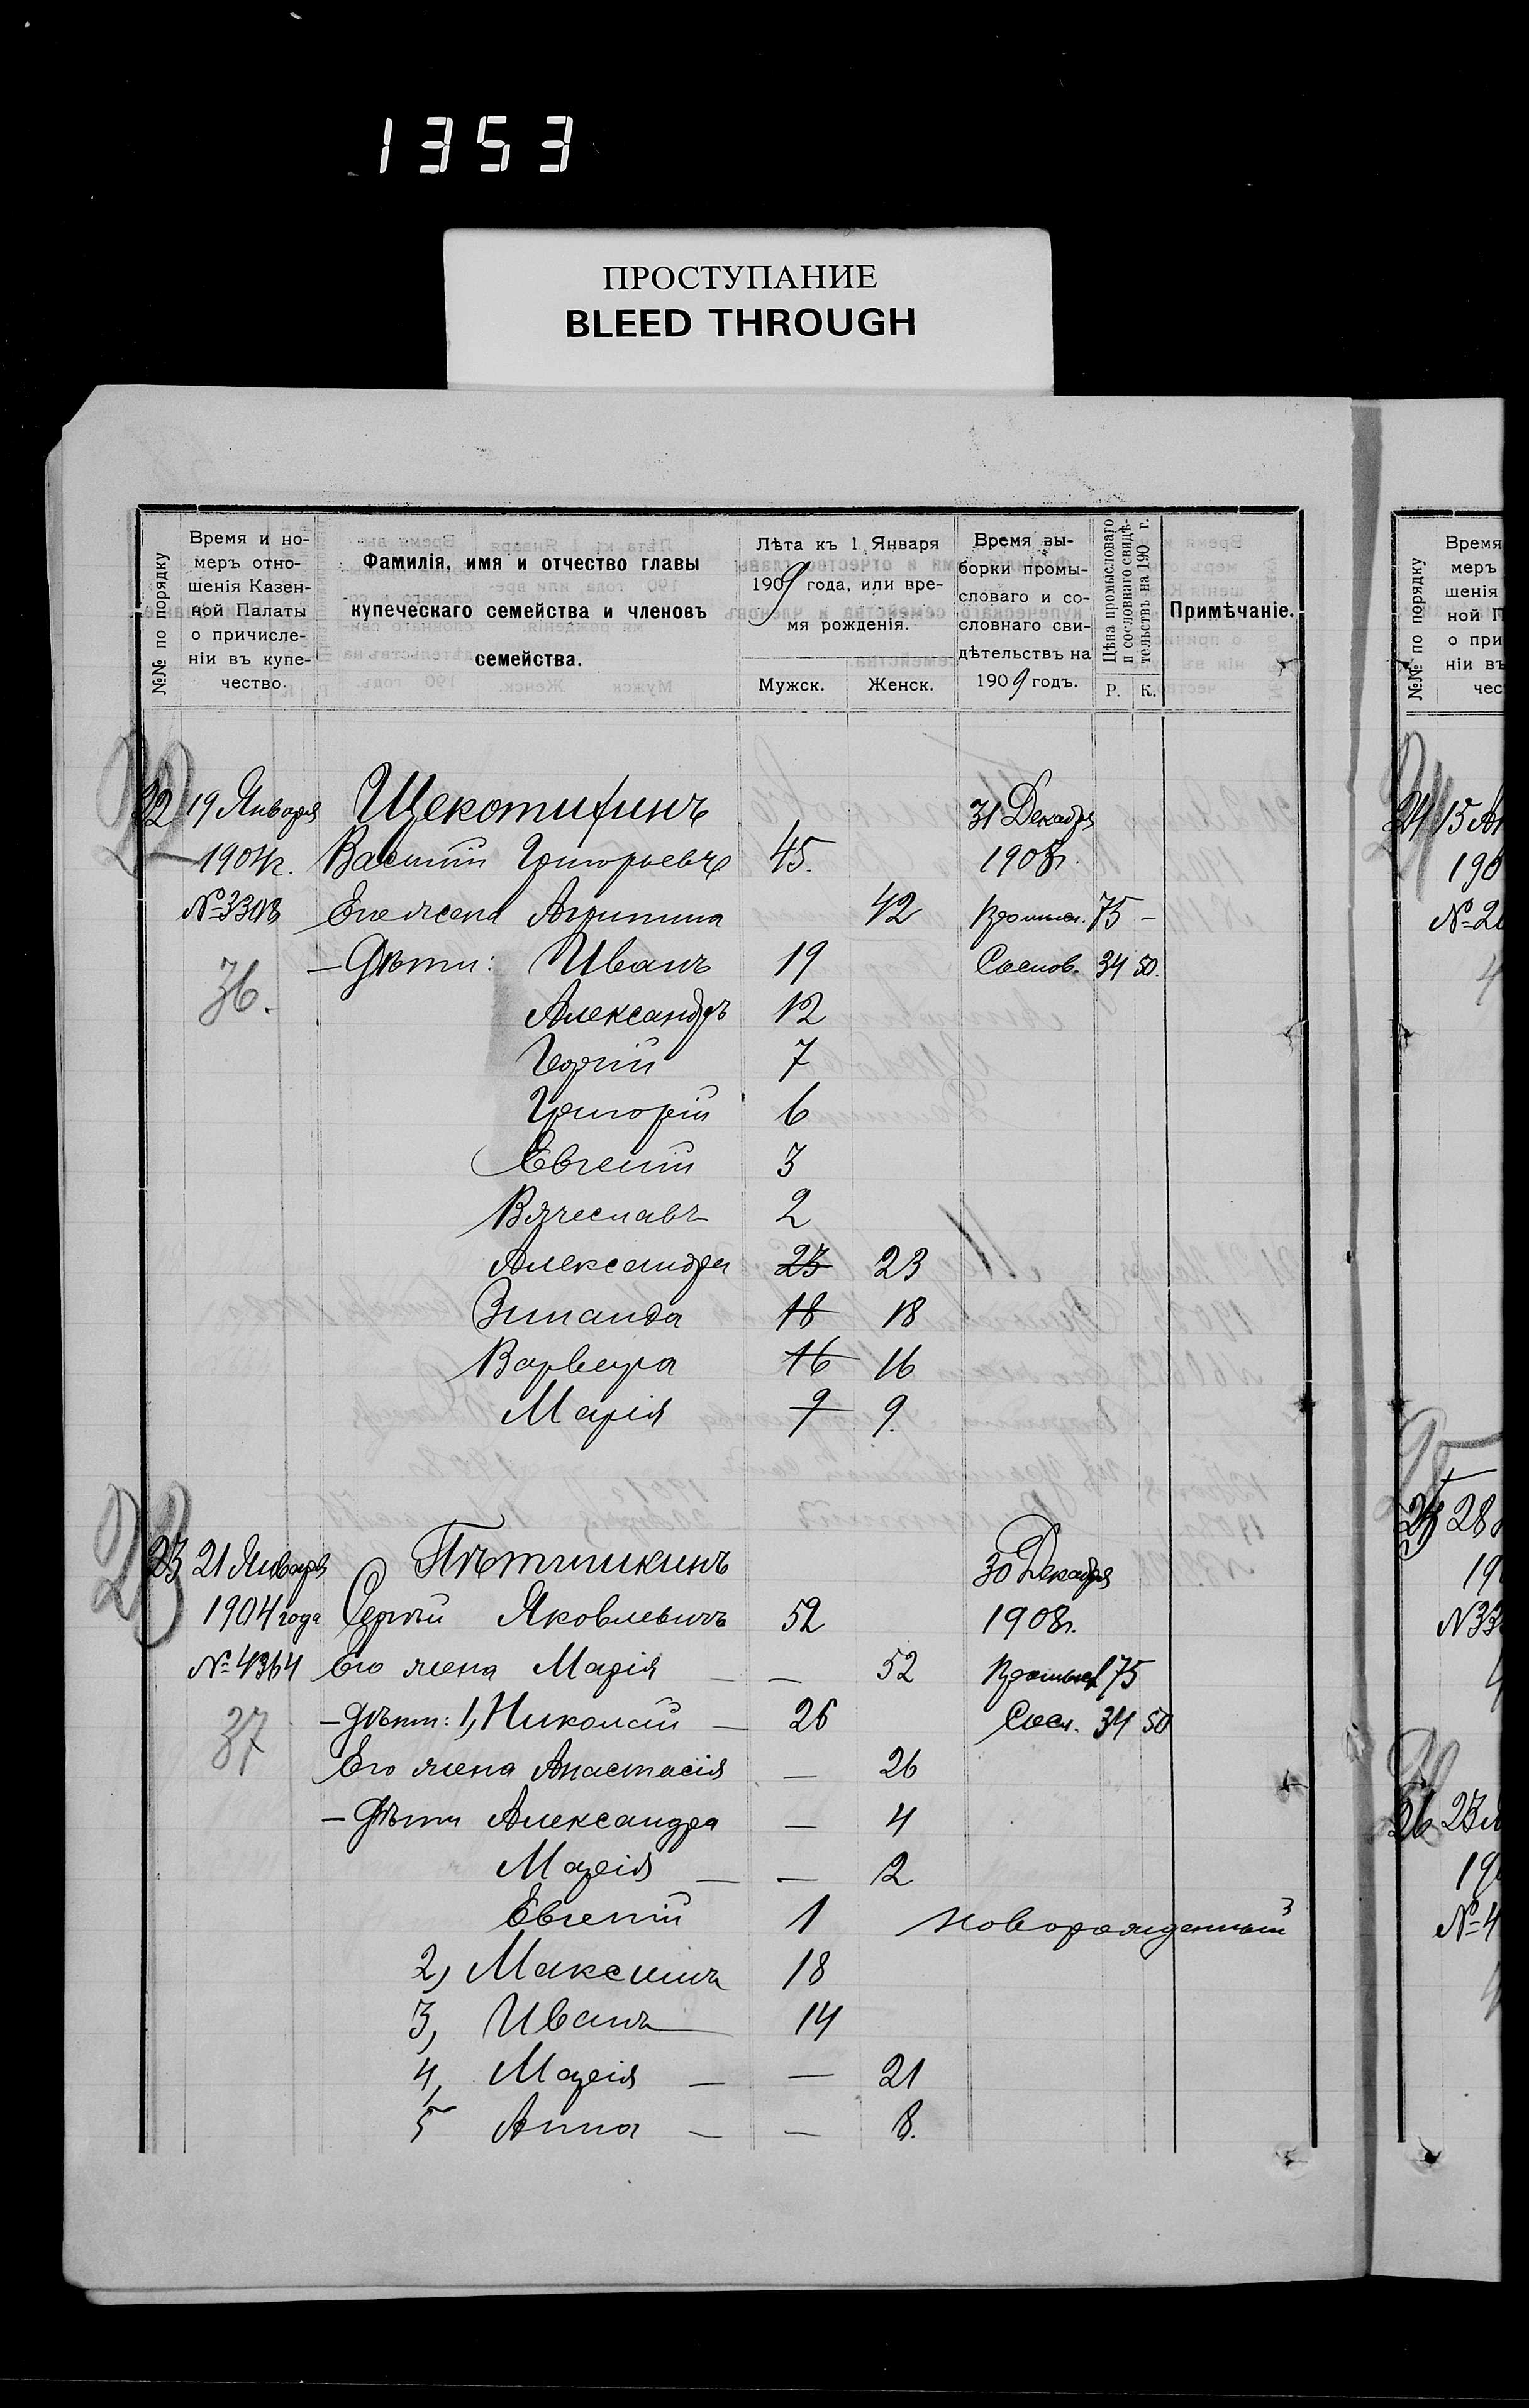 1353
ПРОСТУПАНИЕ
BLEED THROUGH
№№ по порядку
Время и но-
меръ отно-
шенія Казен-
ной Палаты
о причисле-
ніи въ купе-
чество.
Фамилія, имя и отчество главы
купеческаго семейства и членовъ
семейства.
Лѣта къ 1 Января
1909 года, или вре-
мя рожденія.
Мужск. Женск.
Время вы-
борки промы-
словаго и со-
словнаго сви-
дѣтельствъ на
1909 годъ.
Цѣна промысловаго
и сословнаго свидѣ-
тельствъ на 190 г.
Р. К.
Примѣчаніе.
22 19 Января Щекотихинъ 31 Декабря
1904 г. Василій Григорьевъ 45. 1908 г.
№ 3308 Его жена 42 Промысл. 75 -
— Дѣти: Иванъ 19 Сослов. 34 50.
36.
Александръ 12
Георгій 7
Григорій 6
Евгеній 3
Вячеславъ 2
Александра 23 23
Зинаида 18 18
Варвара 16 16
Марія 9 9.
23 21 Января 30 Декабря
1904 года Сергѣй Яковлевичъ 52 1908 г.
№ 4364 Его жена Марія — — 52 Промысл 75
— Дѣти: 1, Николай — 26 Сосл. 34 50
37
Его жена Анастасія — 26
— Дѣти Александра — 4
Марія — — 2
Евгеній 1 новорожденный
2, Максимъ 18
3, Иванъ 14
4, Марія — — 21
5 Анна — — 8.
№№ по порядку
Время
меръ
шенія
ной П
о при
ніи въ
чес
24 15
190
№ 2
25 28
19
№ 33
26 23
19
№ 4